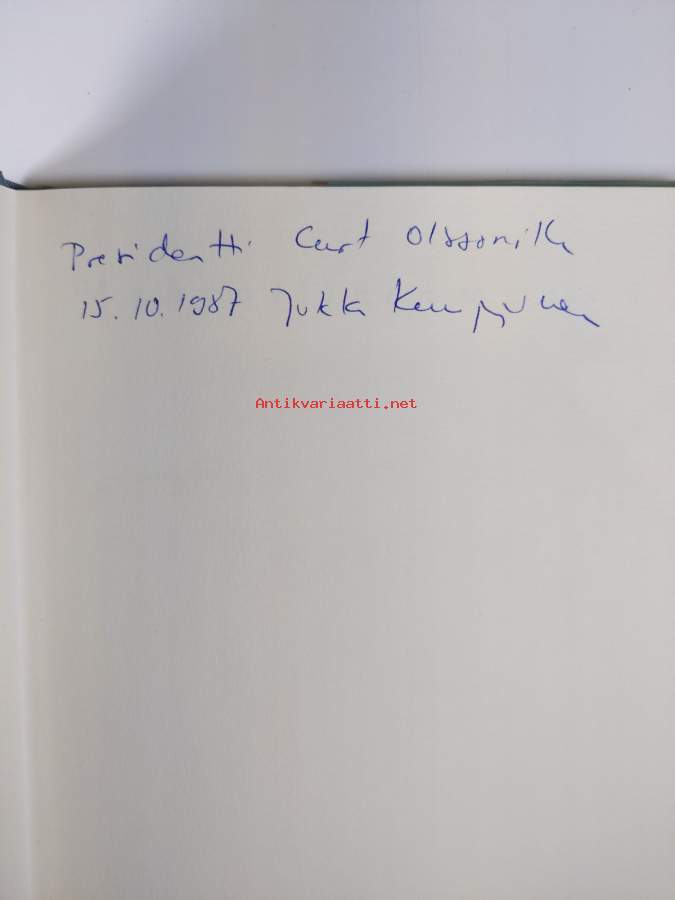 Presidentti Curt Olssonille
15.10.1987 Jukka Kemppinen
Antikvariaatti.net